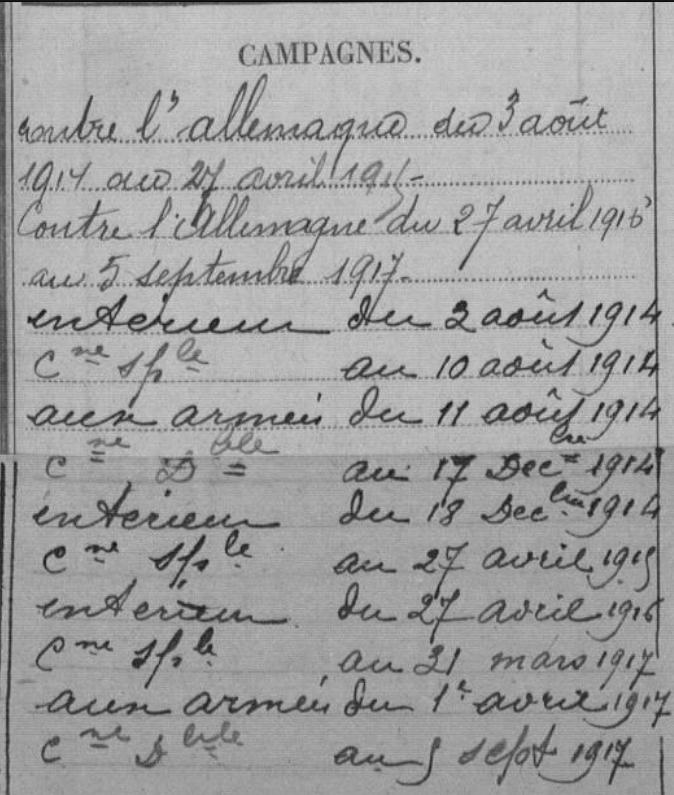 CAMPAGNES.
contre l'allemagne du 3 août
1914 au 27 avril 1915 -
Contre l'Allemagne du 27 avril 1916
au 5 septembre 1917.
intérieur du 2 août 1914
Cne sple au 10 août 1914
aux armées du 11 août 1914
Cne Dble au 17 Decbre 1914
intérieur du 18 Decbre 1914
Cne sple au 27 avril 1915
intérieur du 27 avril 1916
Cne sple au 31 mars 1917
aux armées du 1er avril 1917
Cne Dble au 5 sept 1917